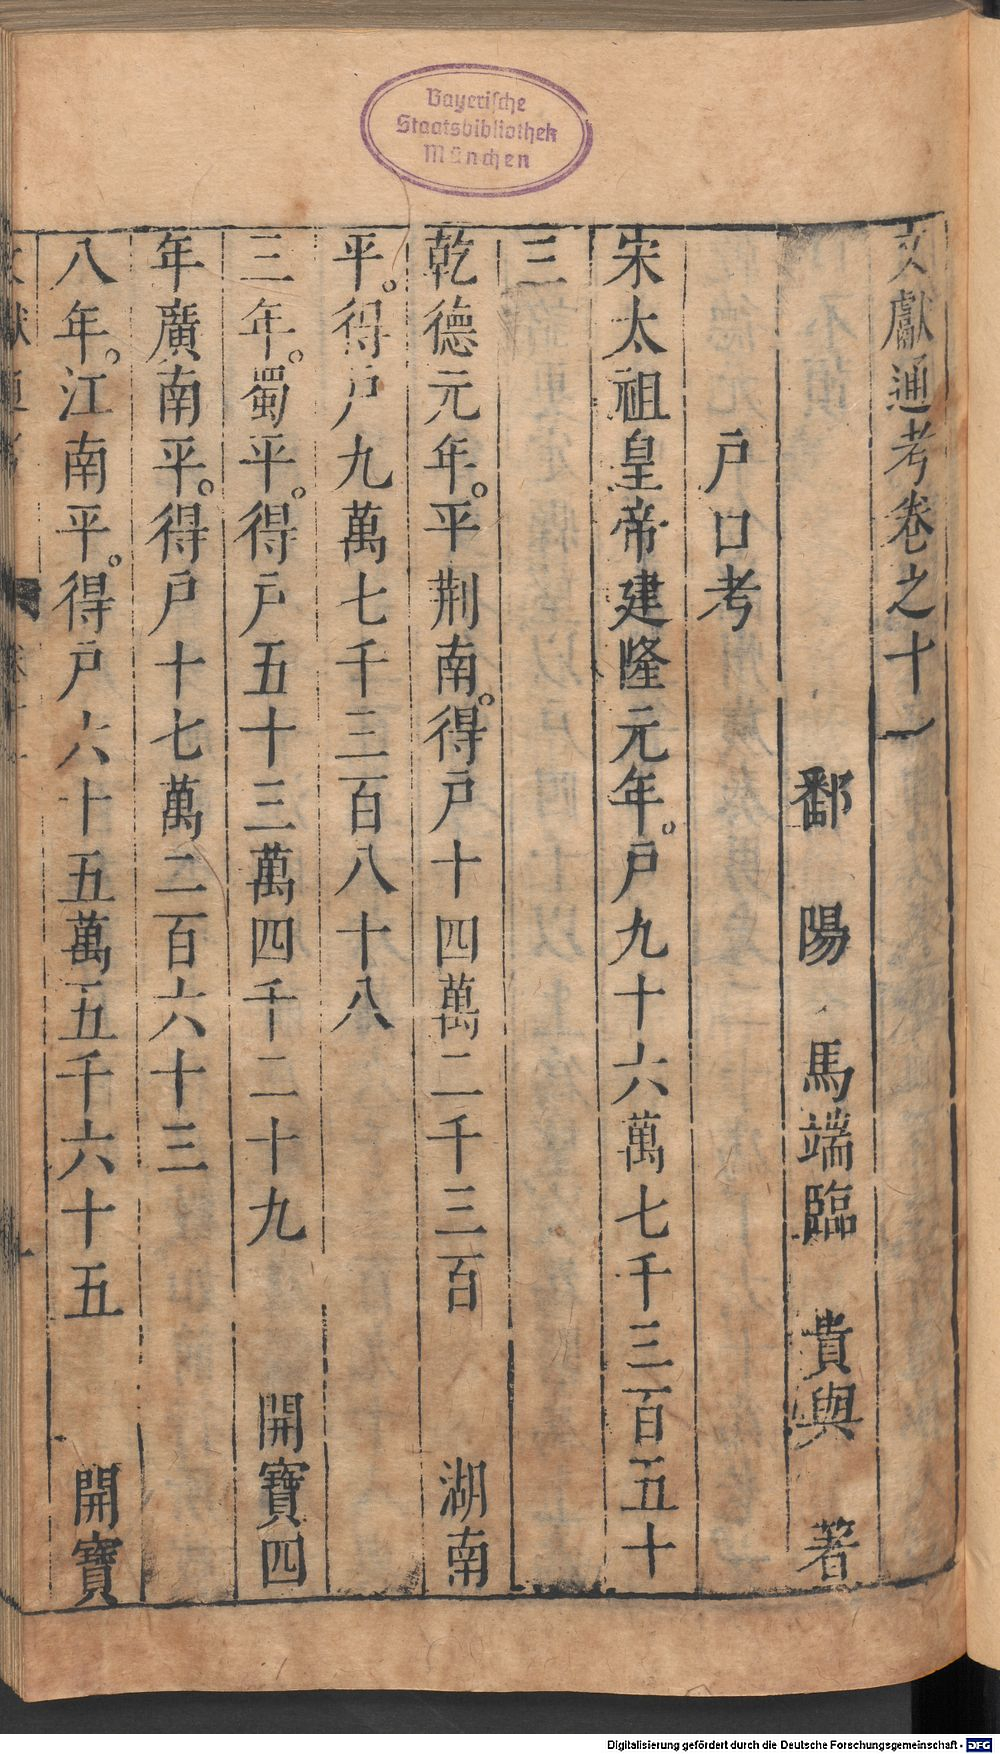 Bayerische
Staatsbibliothek
München
文獻通考卷之十一
鄱陽馬端臨 貴與 著
戶口考
宋太祖皇帝建隆元年。戶九十六萬七千三百五十
三
乾德元年。平荆南。得戶十四萬二千三百 湖南
平。得戶九萬七千三百八十八
三年。蜀平。得戶五十三萬四千二十九 開寶四
年廣南平。得戶十七萬二百六十三
八年。江南平。得戶六十五萬五千六十五 開寶
Digitalisierung gefördert durch die Deutsche Forschungsgemeinschaft - DFG